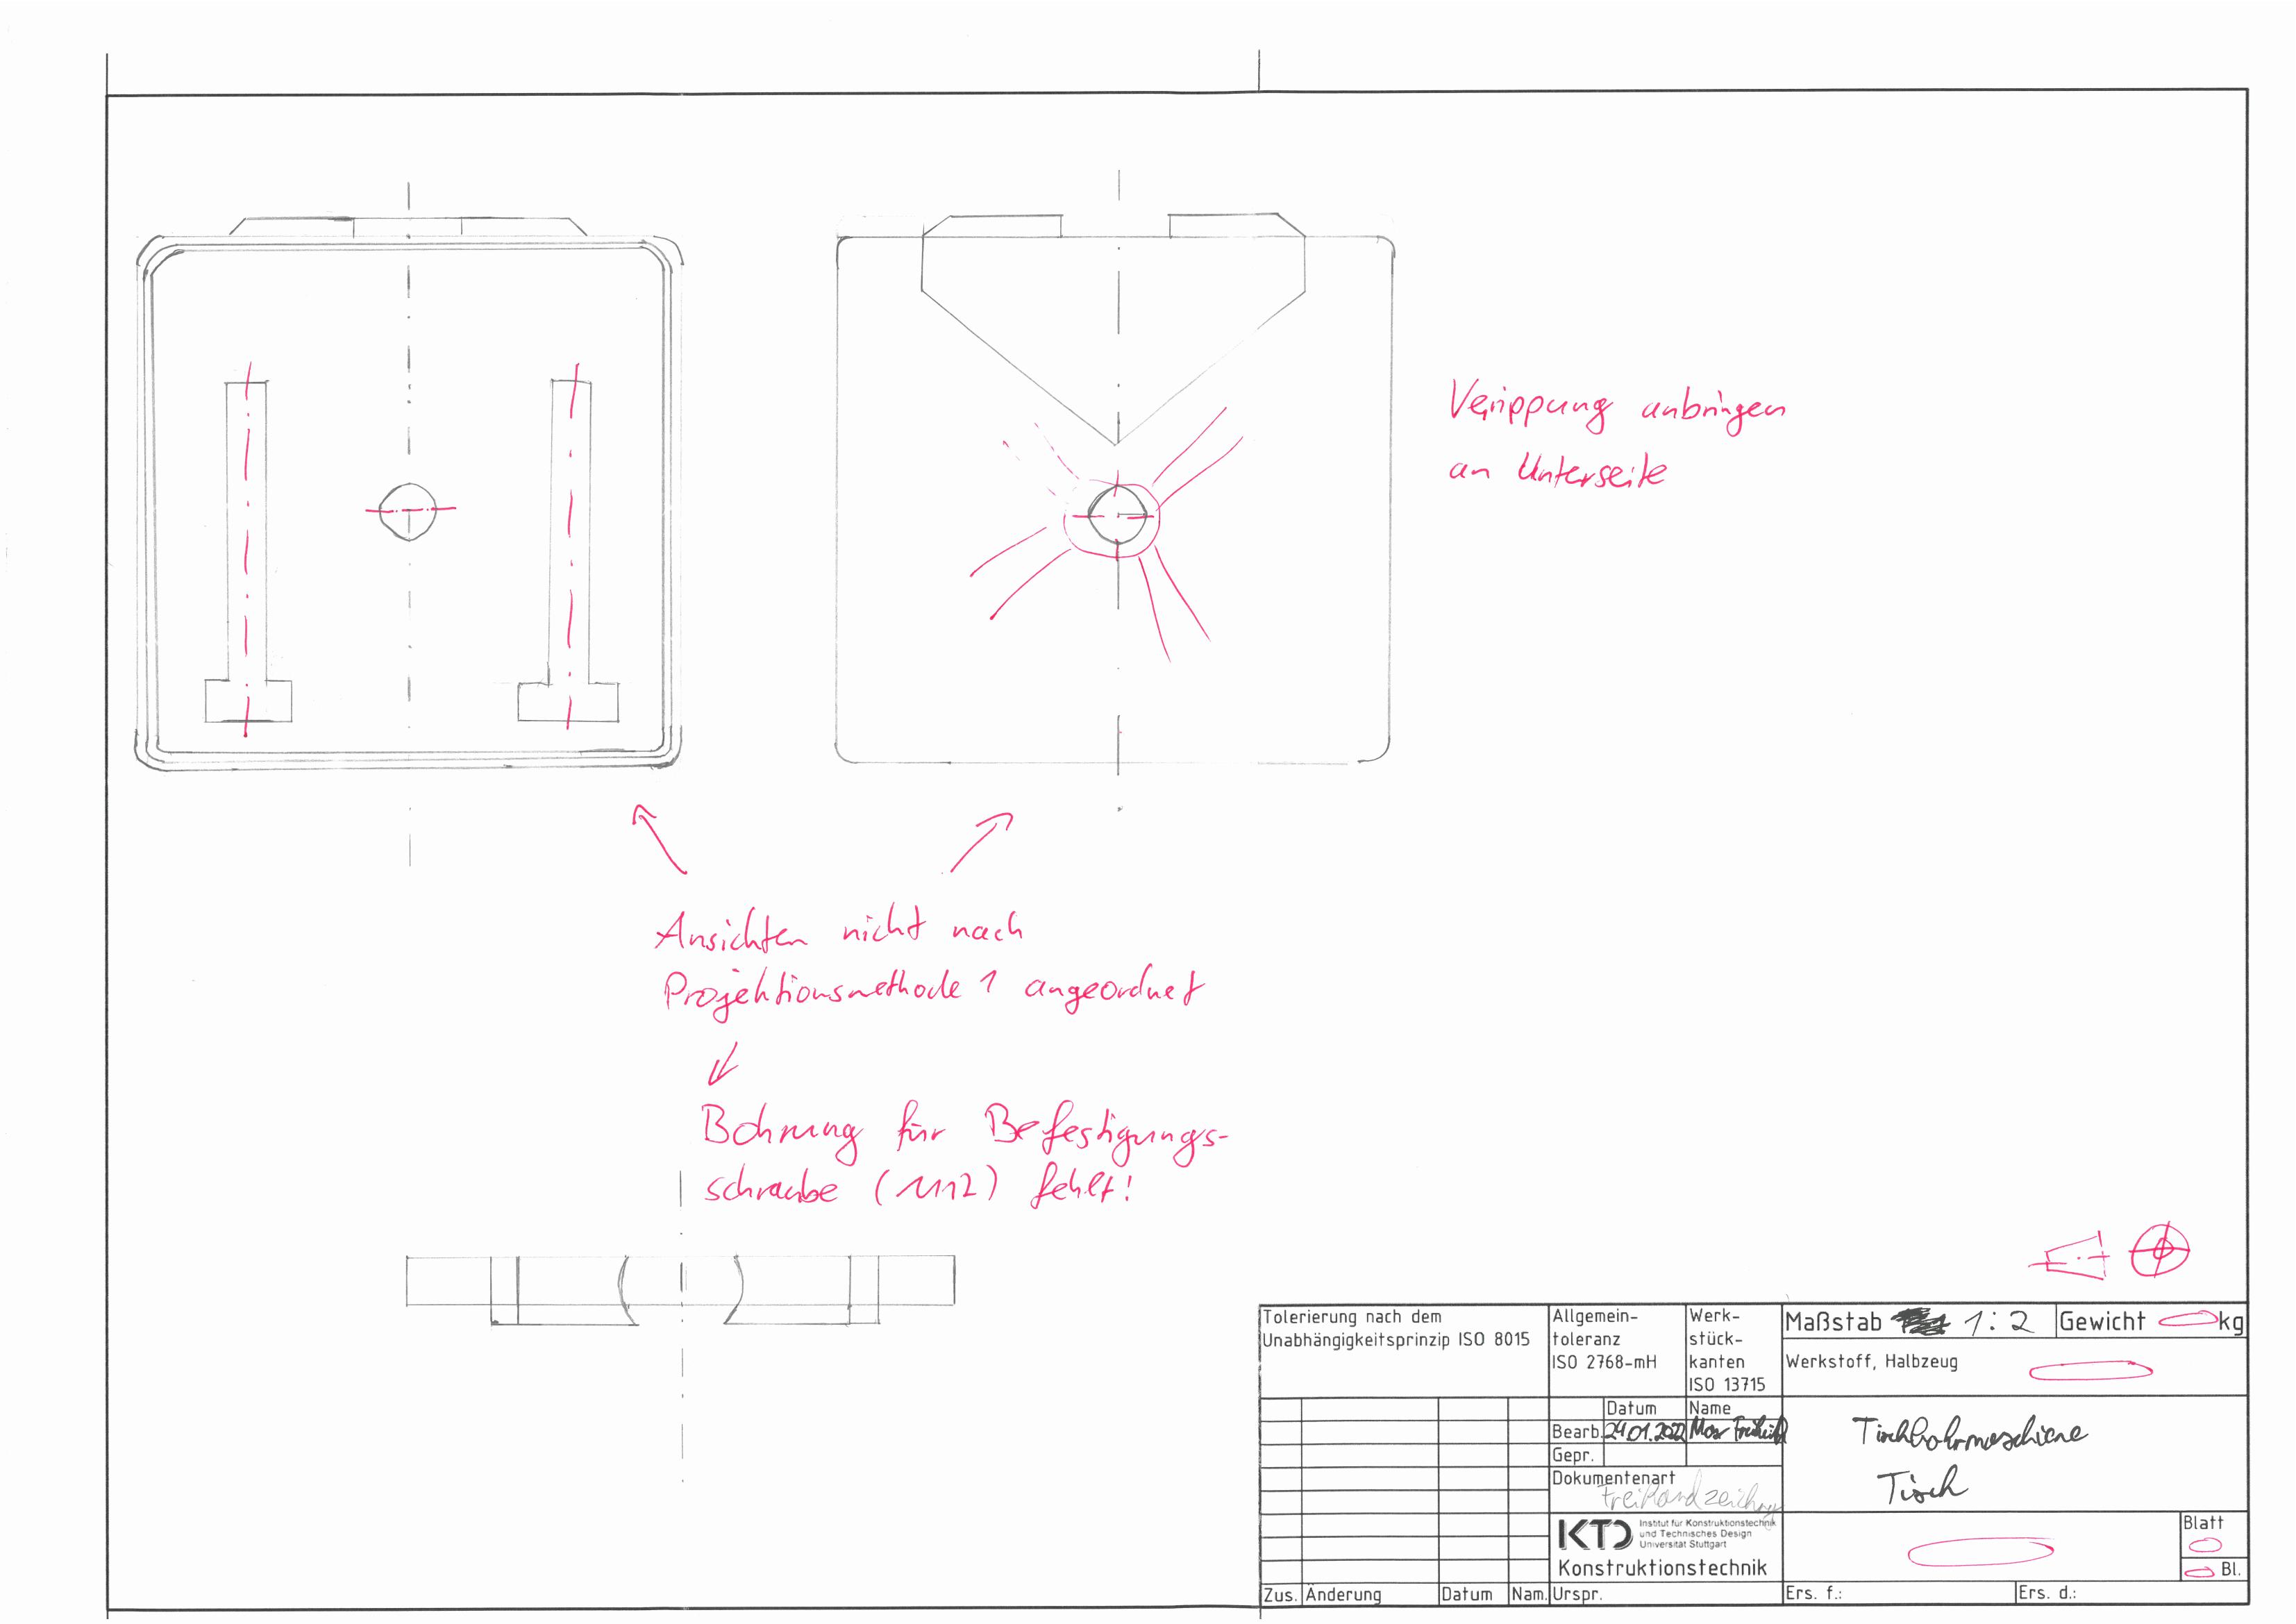 Verrippung anbringen
an Unterseite
Ansichten nicht nach
Projektionsmethode 1 angeordnet
Bohrung für Befestigungs-
schraube (1112) fehlt!
Tolerierung nach dem
Unabhängigkeitsprinzip ISO 8015
Allgemein-
toleranz
ISO 2768-mH
Werk-
stück-
kanten
ISO 13715
Maßstab 1:2
Gewicht kg
Werkstoff, Halbzeug
Datum Name
Bearb. 24.01.2022
Gepr.
Dokumentenart
Freihandzeichnung
Tischbohrmaschine
Tisch
KTD Institut für Konstruktionstechnik
und Technisches Design
Universität Stuttgart
Konstruktionstechnik
Blatt
Bl.
Zus. Änderung Datum Nam. Urspr. Ers. f.: Ers. d.: